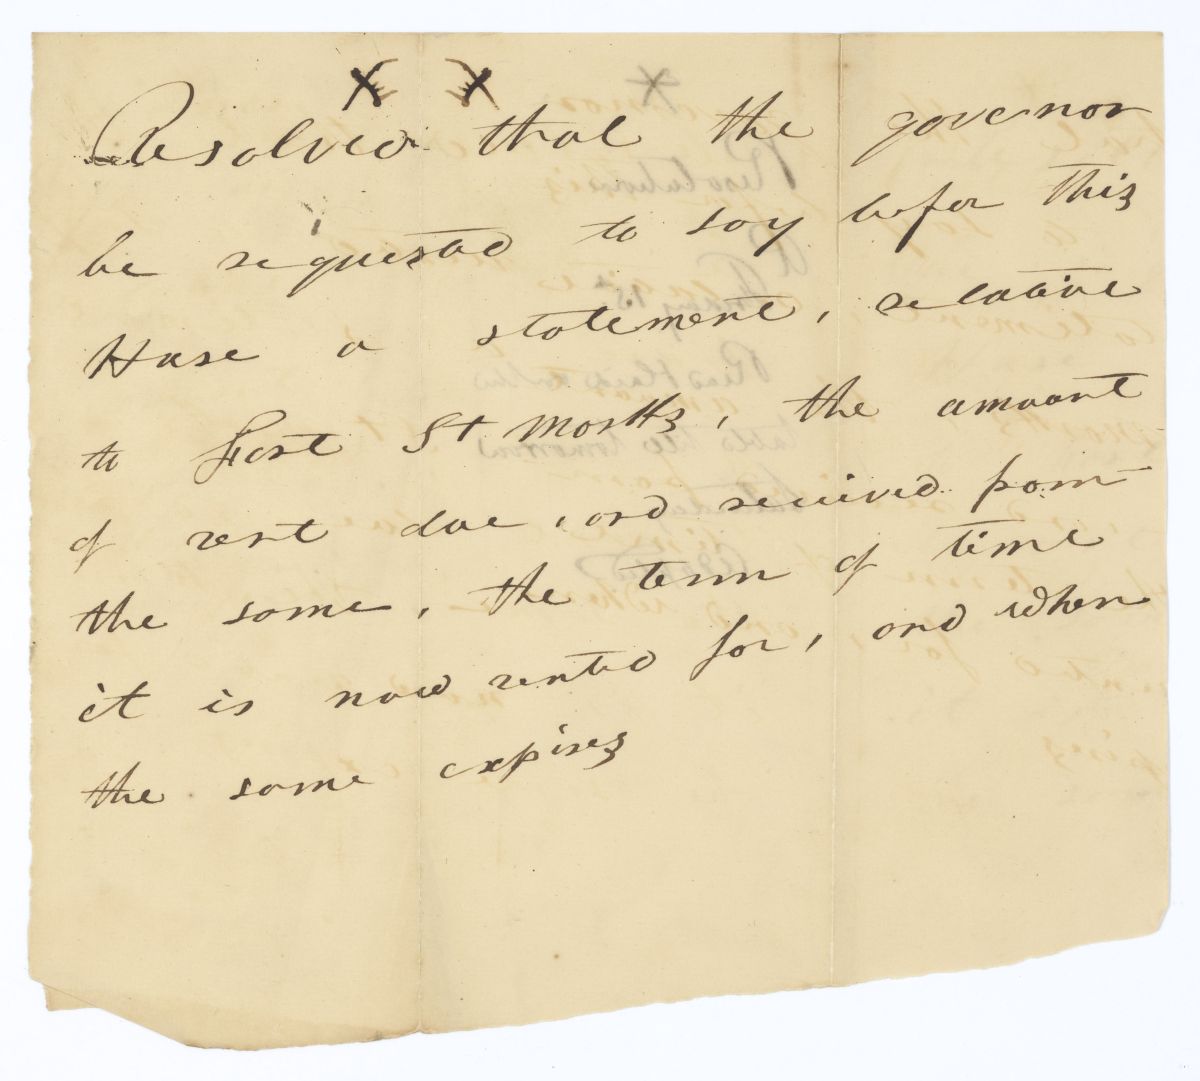 Resolved that the governor
be requested to lay befor this
House a statement, relative
to Fort St Marks, the amount
of rent due, and received from
the same, the term of time
it is now rented for, and when
the same expires